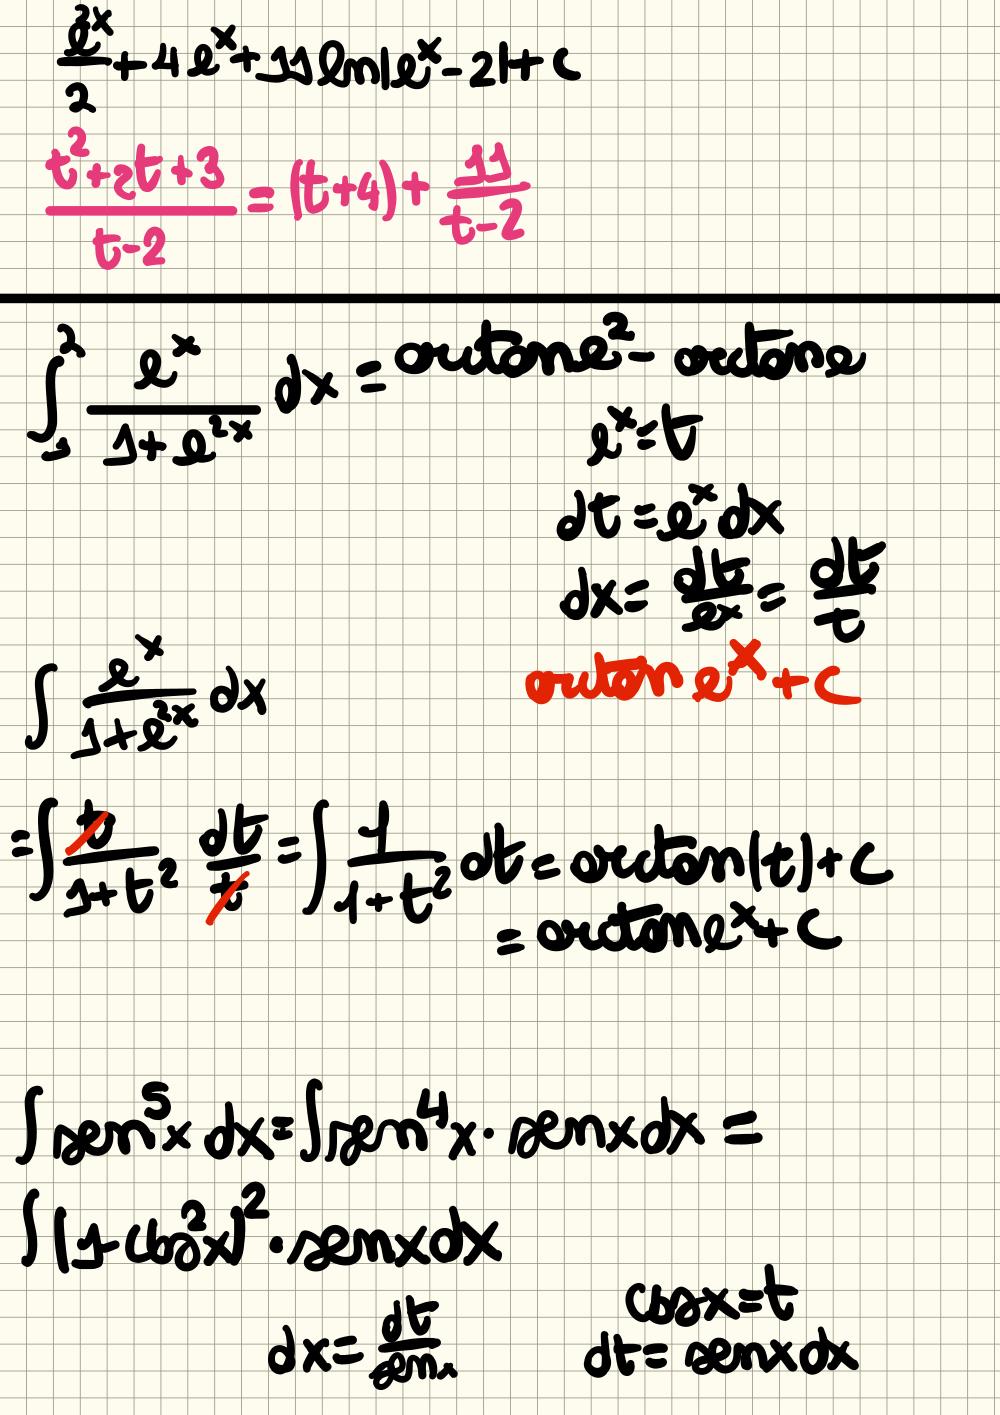 e^{2x}/2 + 4e^x + 11 ln|e^x - 2| + C
(t^2 + 2t + 3)/(t - 2) = (t + 4) + 11/(t - 2)
∫_1^2 e^x/(1 + e^{2x}) dx = arctan e^2 - arctan e
e^x = t
dt = e^x dx
dx = dt/e^x = dt/t
arctan e^x + C
∫ e^x/(1 + e^{2x}) dx
= ∫ t/(1 + t^2) dt/t = ∫ 1/(1 + t^2) dt = arctan(t) + C
= arctan e^x + C
∫ sen^5 x dx = ∫ sen^4 x · sen x dx =
∫ (1 - cos^2 x)^2 · sen x dx
cos x = t
dx = dt/sen x
dt = sen x dx